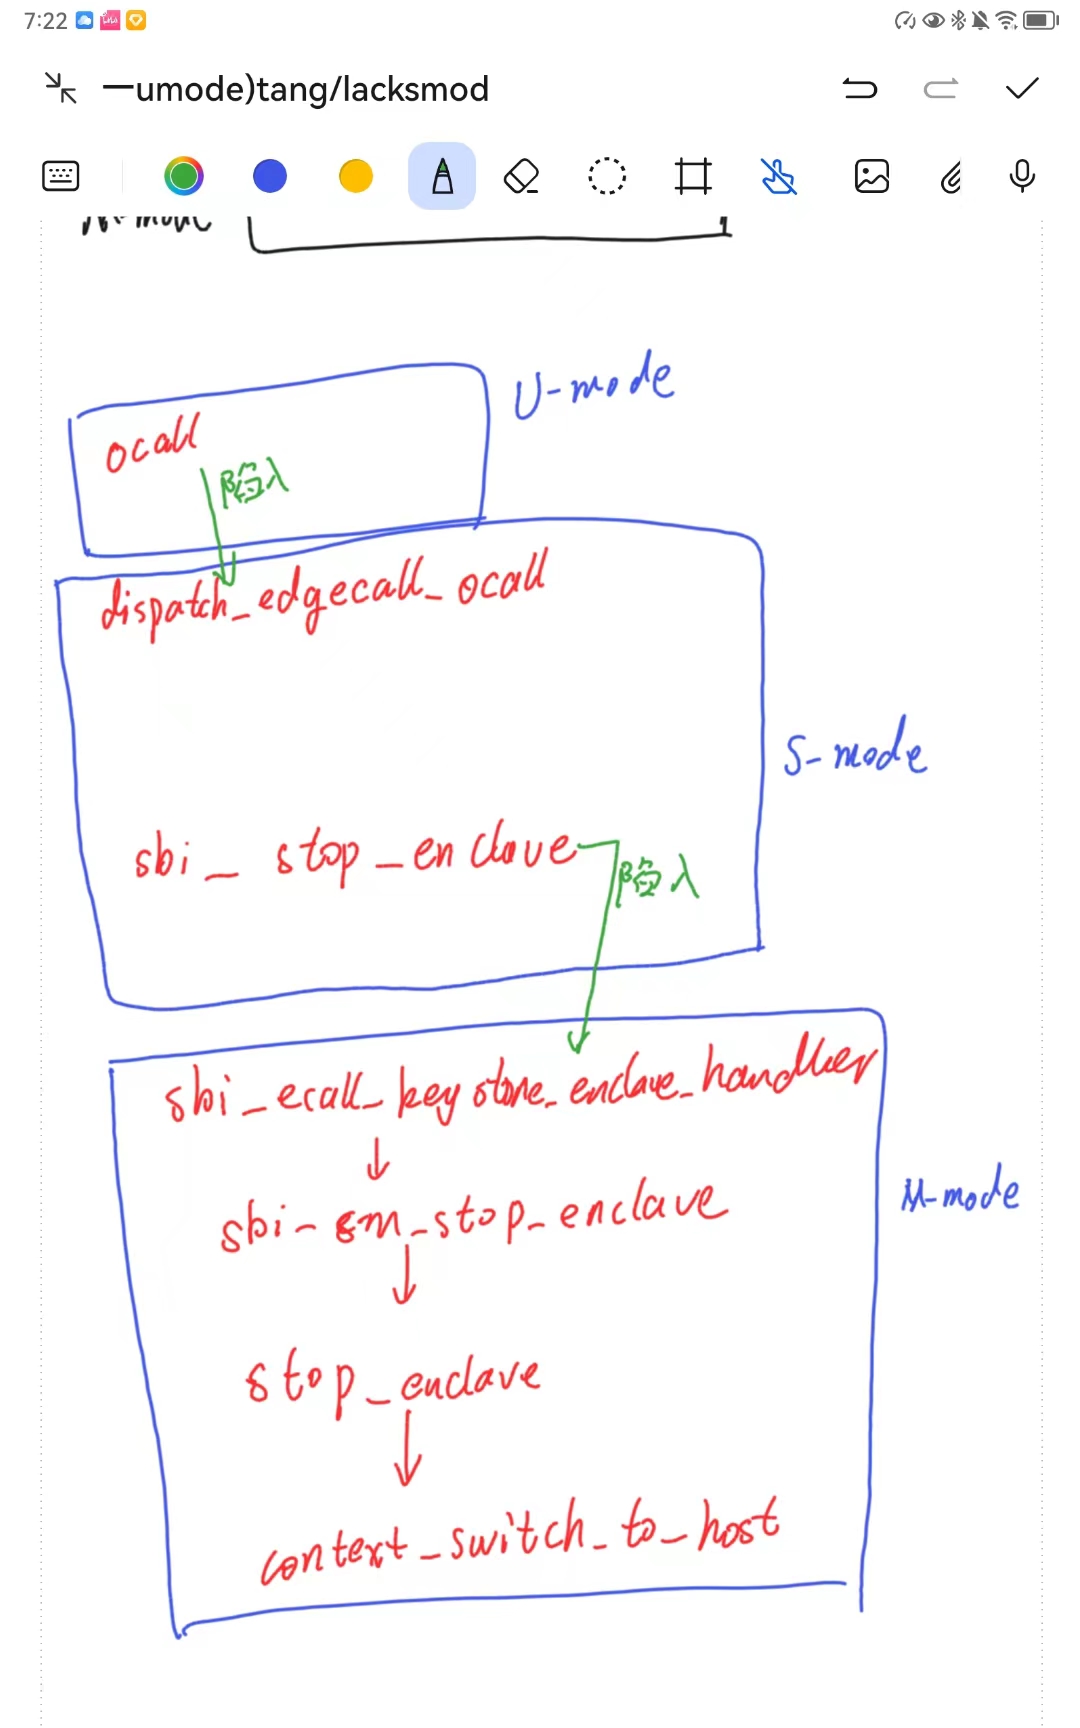 7:22
一umode)tang/lacksmod
U-mode
ocall
陷入
dispatch_edgecall_ocall
S-mode
sbi_stop_enclave
陷入
sbi_ecall_keystone_enclave_handller
sbi_sm_stop_enclave
M-mode
stop_enclave
context_switch_to_host